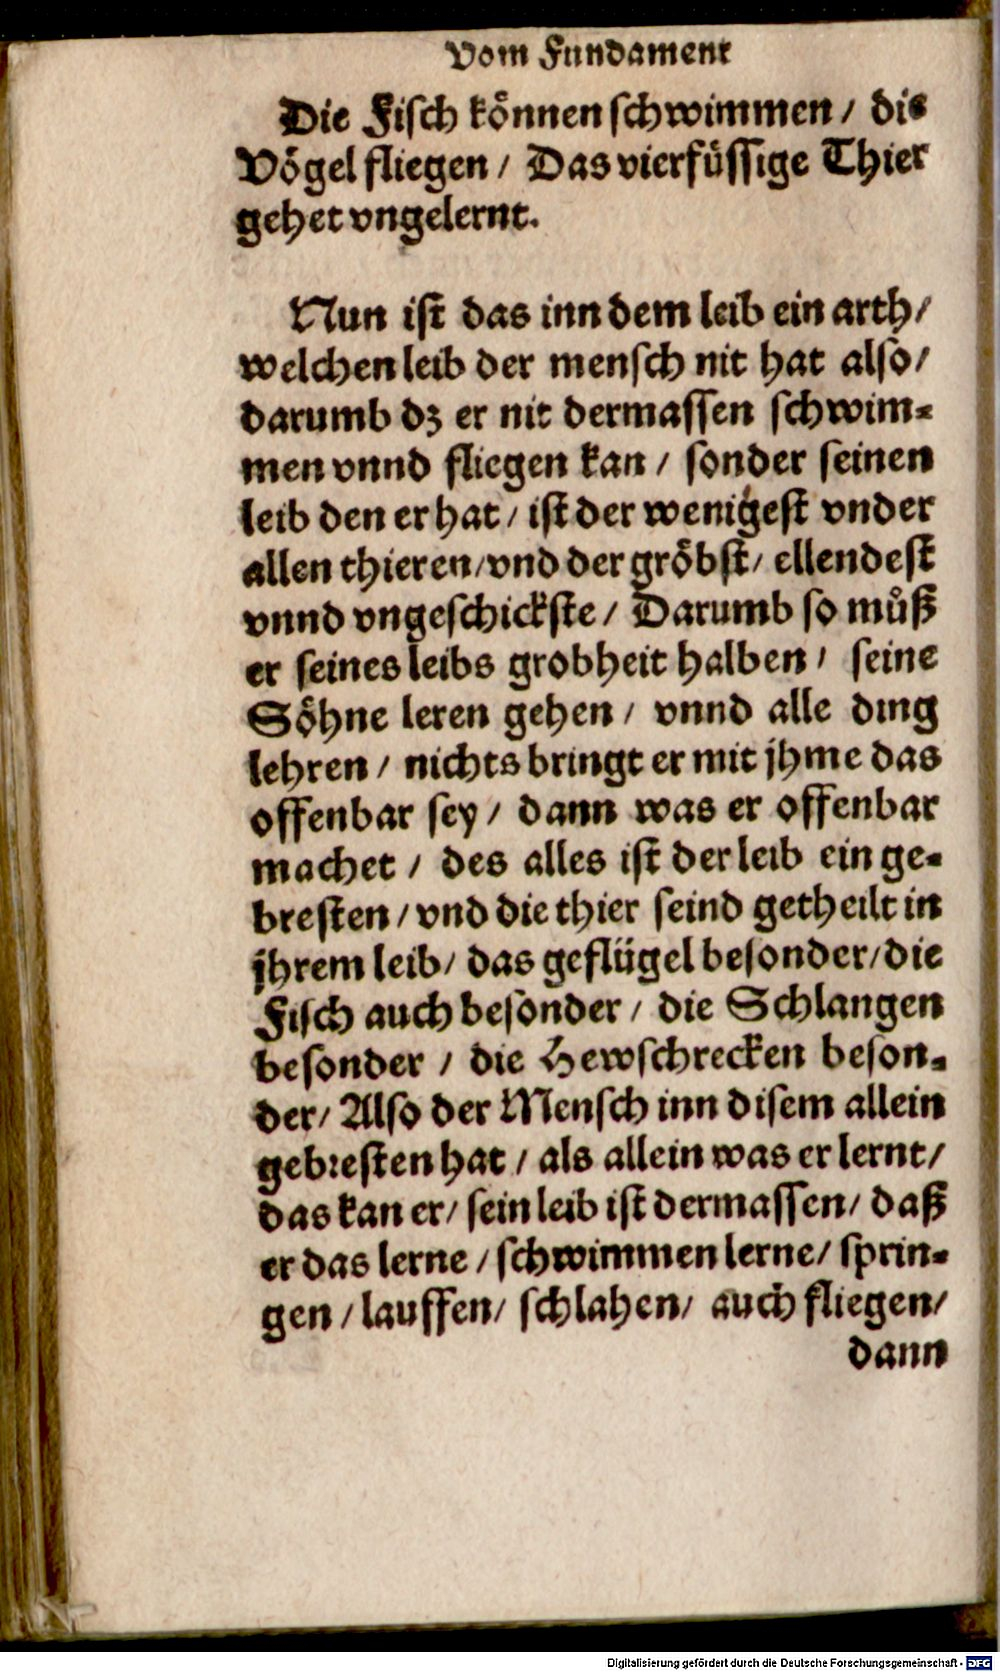 Vom Fundament
Die Fisch können schwimmen / die
Vögel fliegen / Das vierfüssige Thier
gehet vngelernt.
Nun ist das inn dem leib ein arth /
welchen leib der mensch nit hat also /
darumb dz er nit dermassen schwim⸗
men vnnd fliegen kan / sonder seinen
leib den er hat / ist der wenigest vnder
allen thieren / vnd der gröbst / ellendest
vnnd vngeschickste / Darumb so můß
er seines leibs grobheit halben / seine
Söhne leren gehen / vnnd alle ding
lehren / nichts bringt er mit jhme das
offenbar sey / dann was er offenbar
machet / des alles ist der leib ein ge⸗
bresten / vnd die thier seind getheilt in
jhrem leib / das geflügel besonder / die
Fisch auch besonder / die Schlangen
besonder / die Hewschrecken beson⸗
der / Also der Mensch inn disem allein
gebresten hat / als allein was er lernt /
das kan er / sein leib ist dermassen / daß
er das lerne / schwimmen lerne / sprin⸗
gen / lauffen / schlahen / auch fliegen /
dann
Digitalisierung gefördert durch die Deutsche Forschungsgemeinschaft - DFG